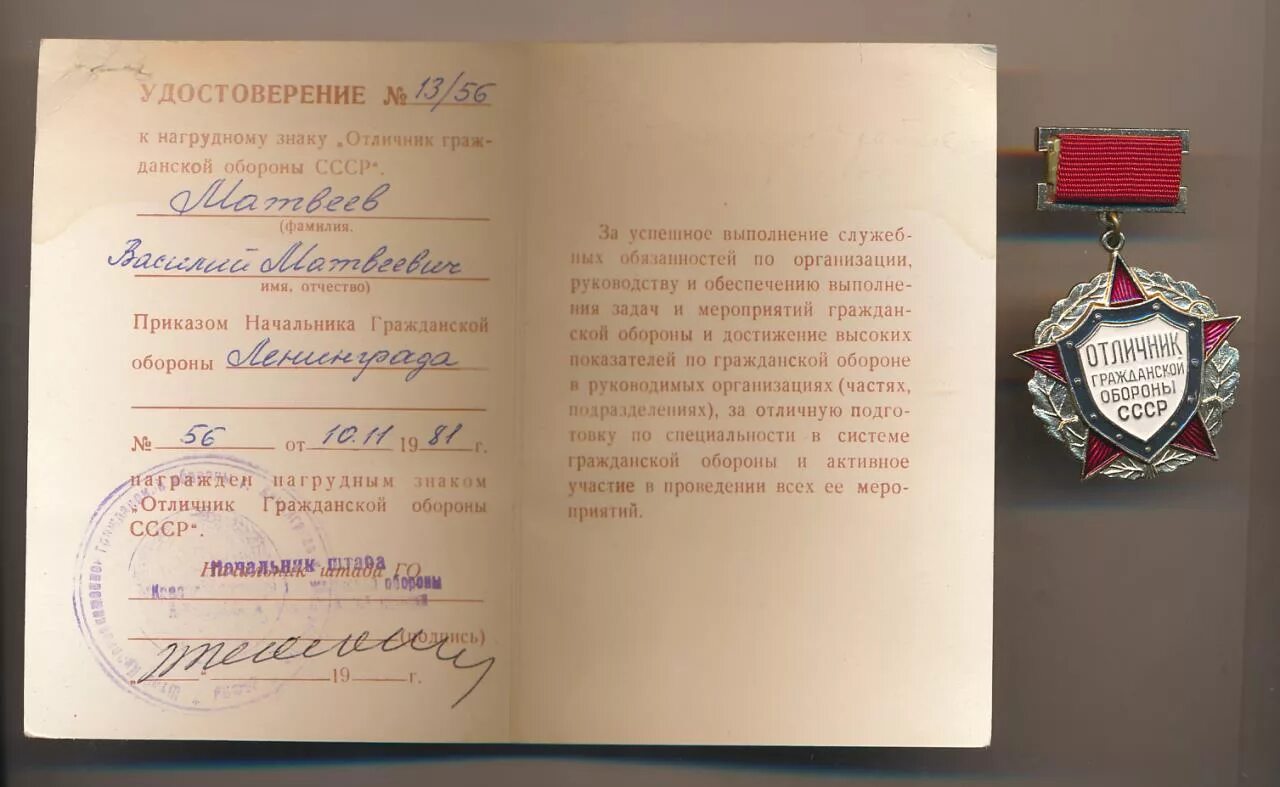 УДОСТОВЕРЕНИЕ № 13/56
к нагрудному знаку „Отличник граж-
данской обороны СССР“.
Матвеев
(фамилия.
Василий Матвеевич
имя, отчество)
Приказом Начальника Гражданской
обороны Ленинграда
№ 56 от 10.11 1981 г.
награжден нагрудным знаком
„Отличник Гражданской обороны
СССР“.
Начальник штаба ГО
Начальник штаба
обороны
(подпись)
„ “ 19 г.
За успешное выполнение служеб-
ных обязанностей по организации,
руководству и обеспечению выполне-
ния задач и мероприятий граждан-
ской обороны и достижение высоких
показателей по гражданской обороне
в руководимых организациях (частях,
подразделениях), за отличную подго-
товку по специальности в системе
гражданской обороны и активное
участие в проведении всех ее меро-
приятий.
ОТЛИЧНИК
ГРАЖДАНСКОЙ
ОБОРОНЫ
СССР